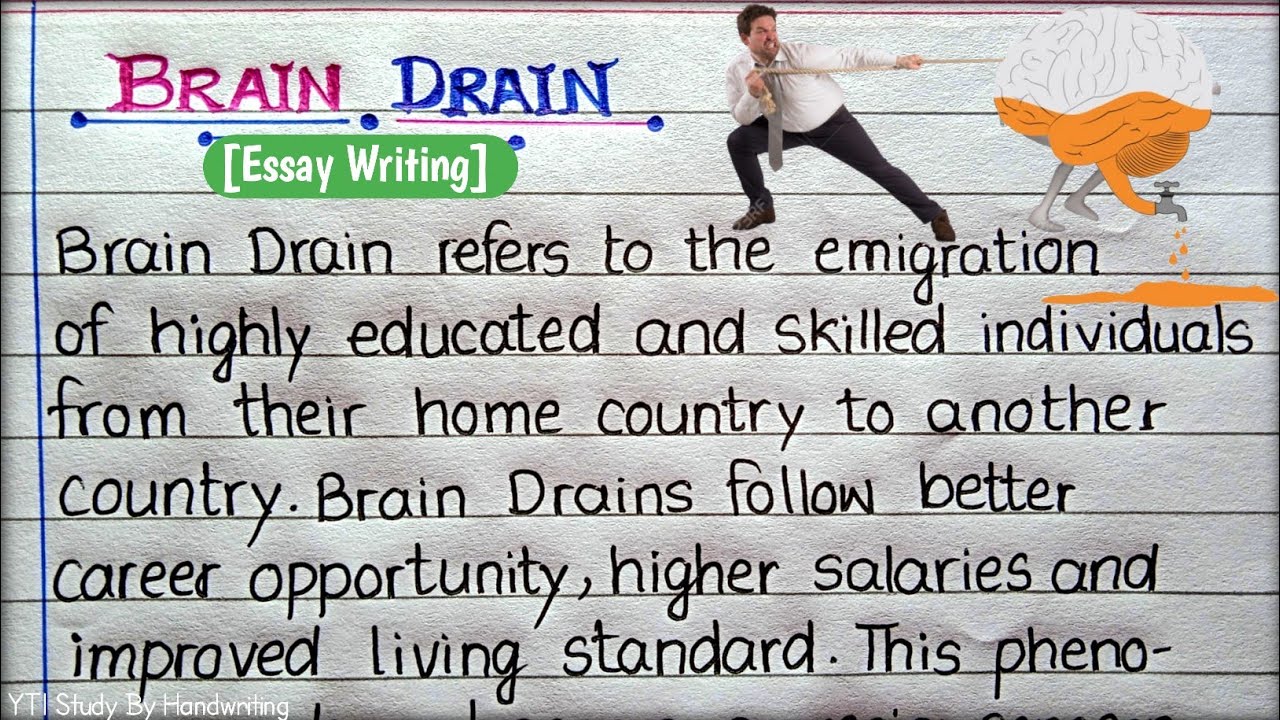 BRAIN DRAIN
[Essay Writing]
Brain Drain refers to the emigration
of highly educated and skilled individuals
from their home country to another
country. Brain Drains follow better
career opportunity, higher salaries and
improved living standard. This pheno-
YT| Study By Handwriting